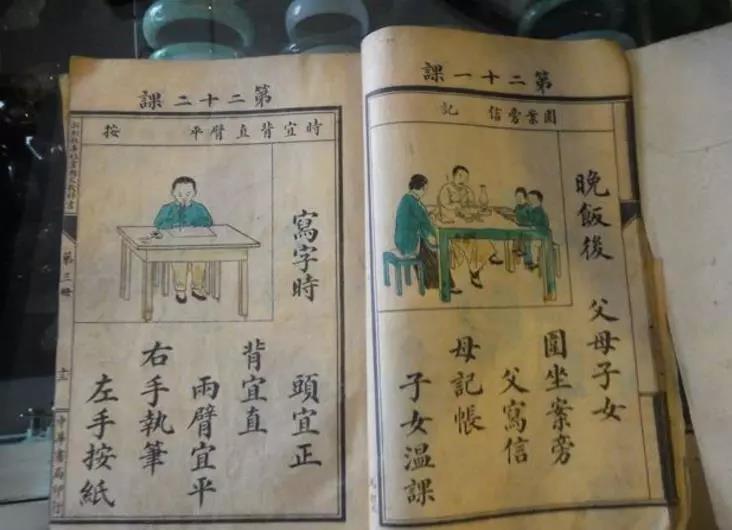 第二十一課
圍案旁信記
晚飯後
父母子女
圍坐案旁
父寫信
母記帳
子女温課
第二十二課
時宜背直臂平按
寫字時
頭宜正
背宜直
兩臂宜平
右手執筆
左手按紙
教科書
第三冊
中華書局印行